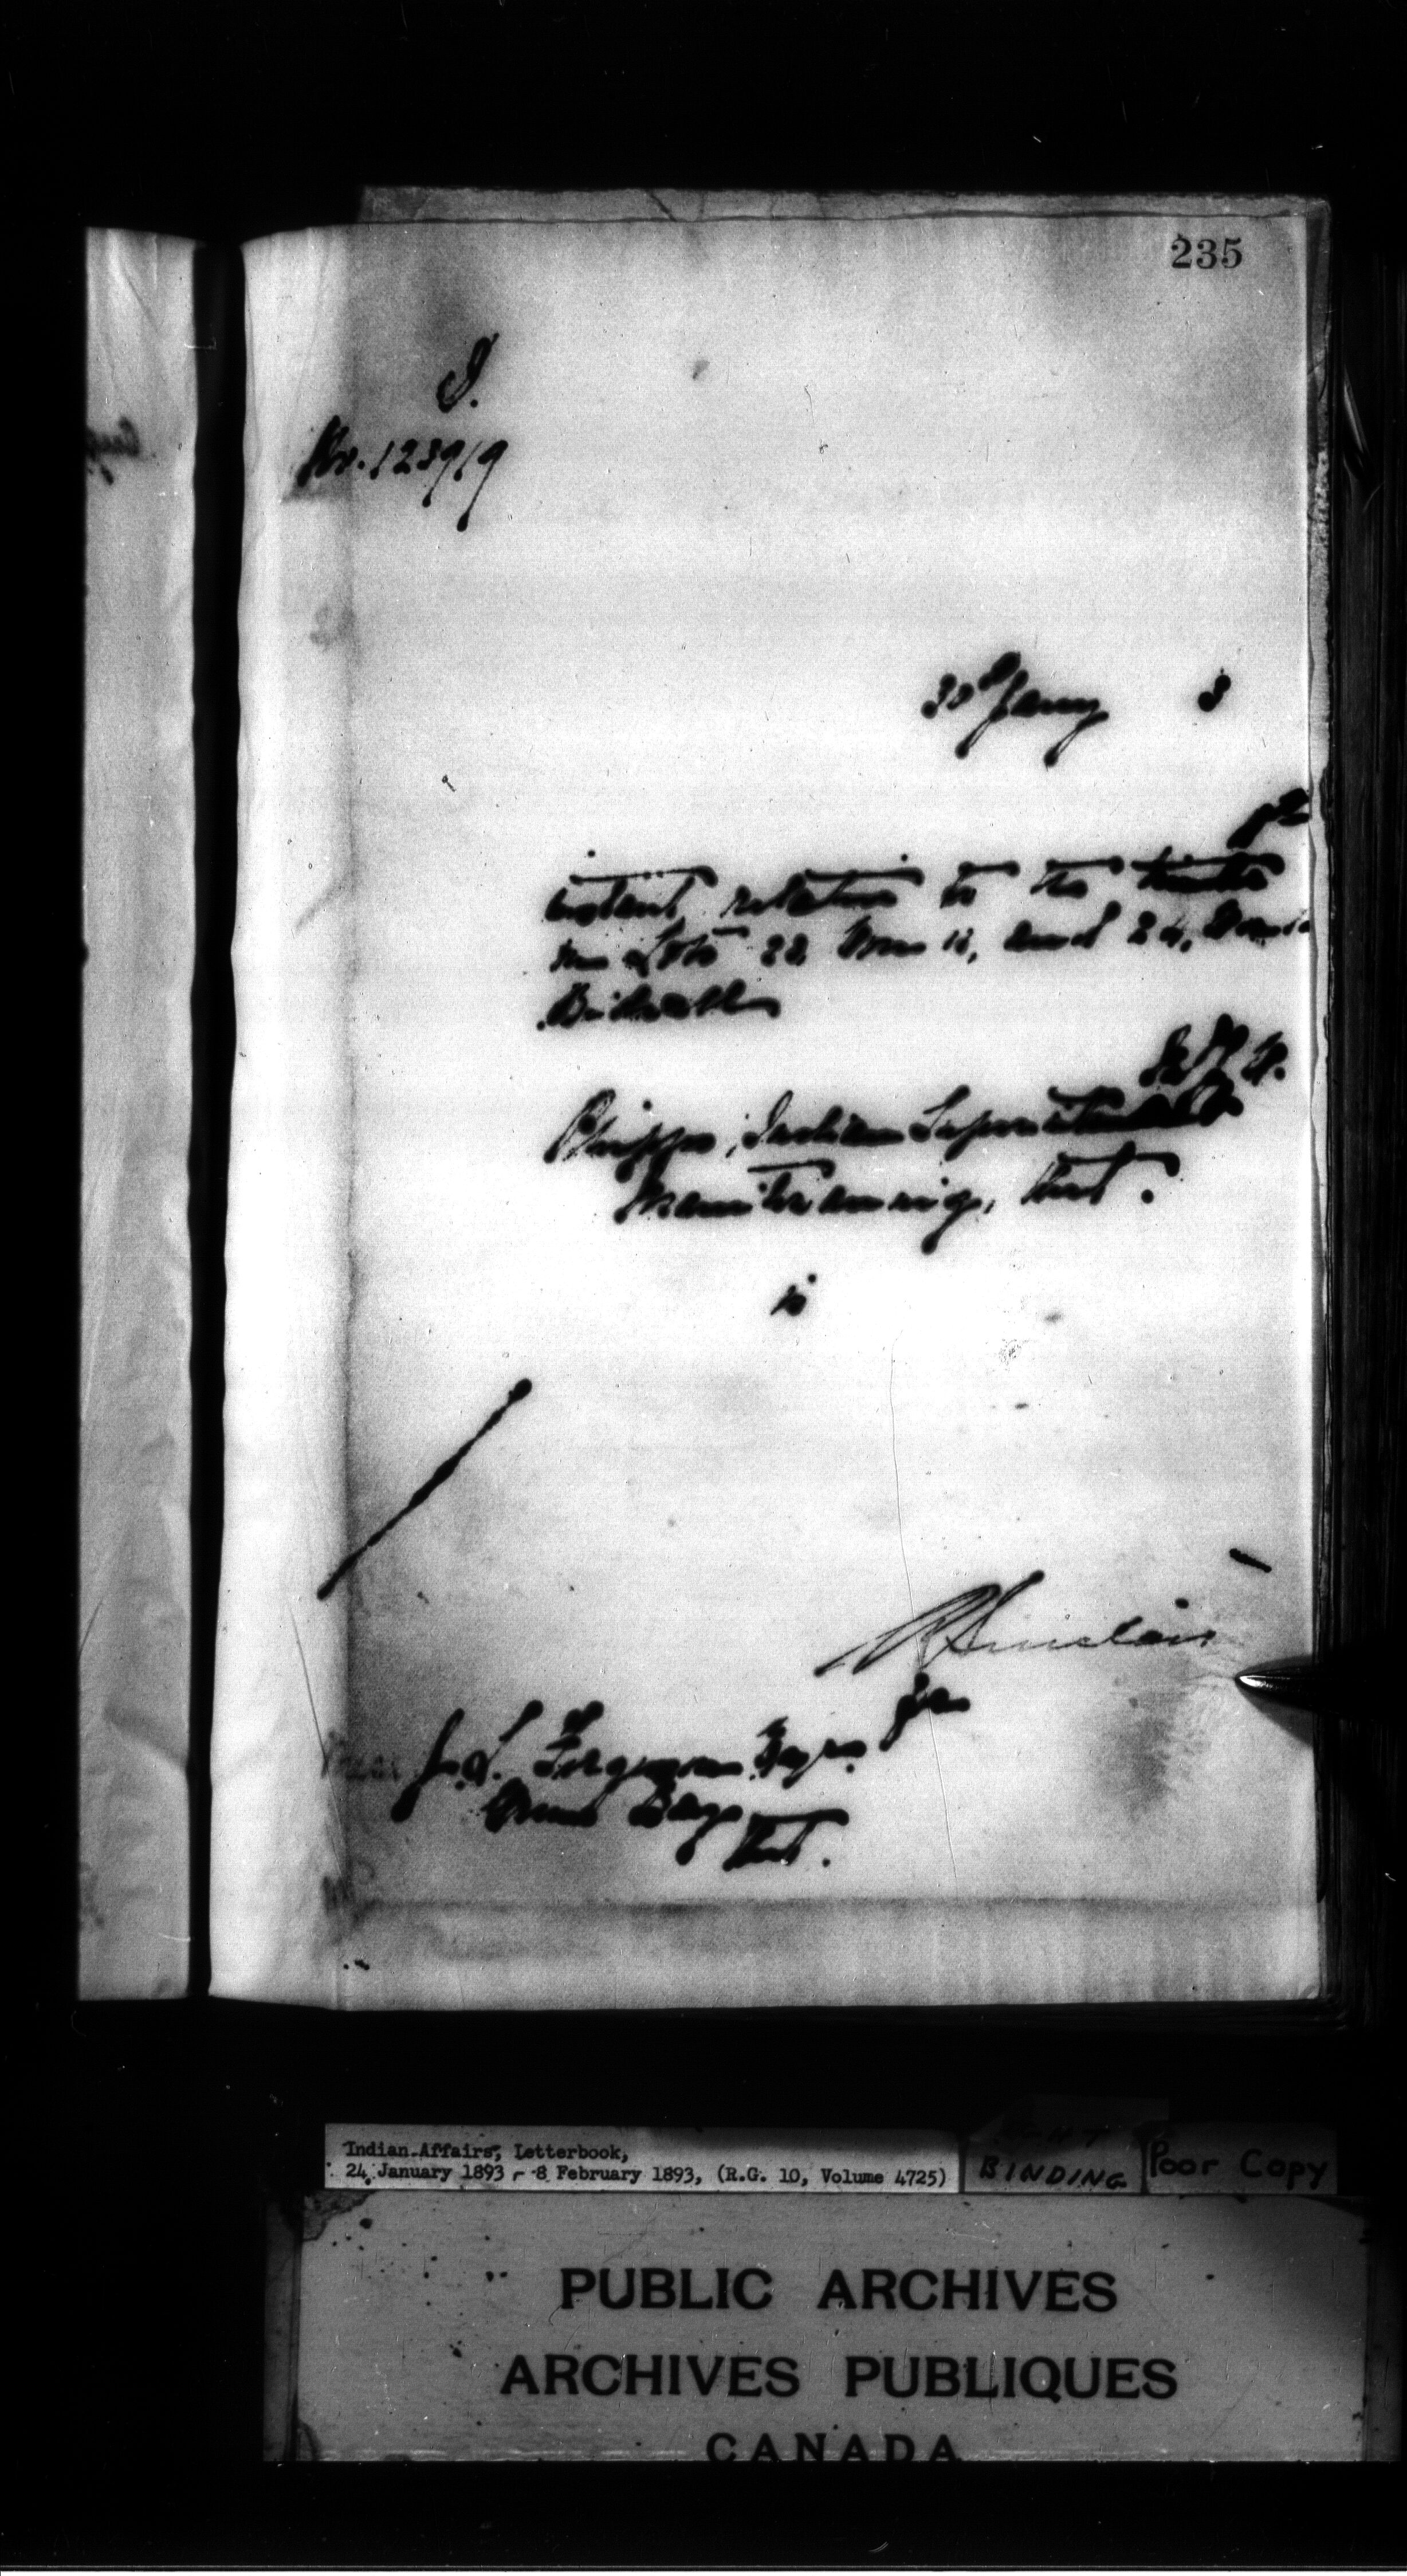 235
J.
No. 123919
30th Jany 3
9th
instant, relative to the timber
on Lots 22, Con 11, and 24, Con 12
Bidwell
Jas. C.
Phipps, Indian Superintendent
Manitowaning, Ont.
is
R Sinclair
for
J. L. Ferguson Esqre.
Bay
Ont.
Indian Affairs, Letterbook,
24 January 1893 - 8 February 1893, (R.G. 10, Volume 4725)
BINDING
Poor Copy
PUBLIC ARCHIVES
ARCHIVES PUBLIQUES
CANADA